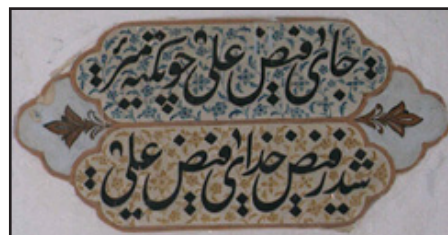 جای فیض علی چو تکیه
شد ز فیض خدای فیض علی